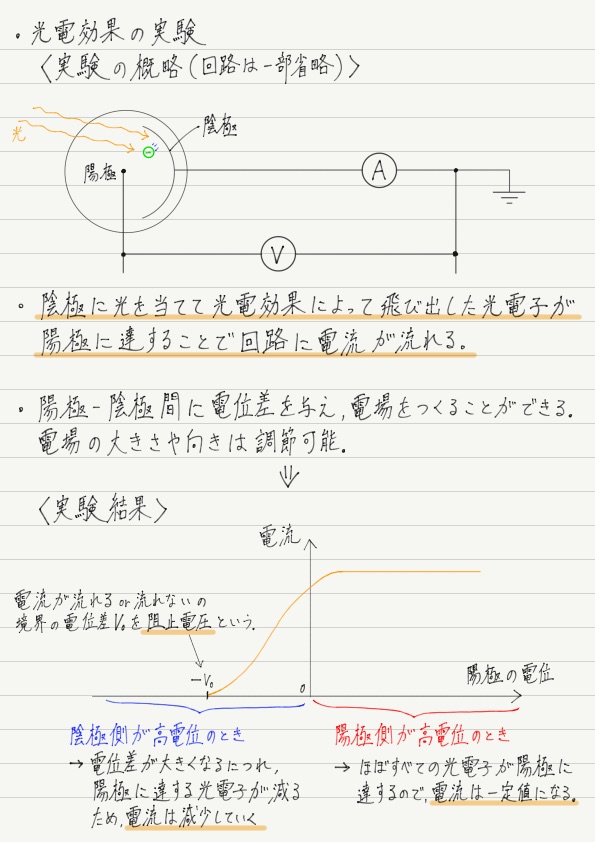 ・光電効果の実験
〈実験の概略(回路は一部省略)〉
光
陰極
陽極
A
V
・陰極に光を当てて光電効果によって飛び出した光電子が
陽極に達することで回路に電流が流れる。
・陽極-陰極間に電位差を与え,電場をつくることができる.
電場の大きさや向きは調節可能.
⇓
〈実験結果〉
電流
電流が流れるor流れないの
境界の電位差V₀を阻止電圧という.
-V₀
0
陽極の電位
陰極側が高電位のとき
→電位差が大きくなるにつれ,
陽極に達する光電子が減る
ため,電流は減少していく
陽極側が高電位のとき
→ほぼすべての光電子が陽極に
達するので,電流は一定値になる.